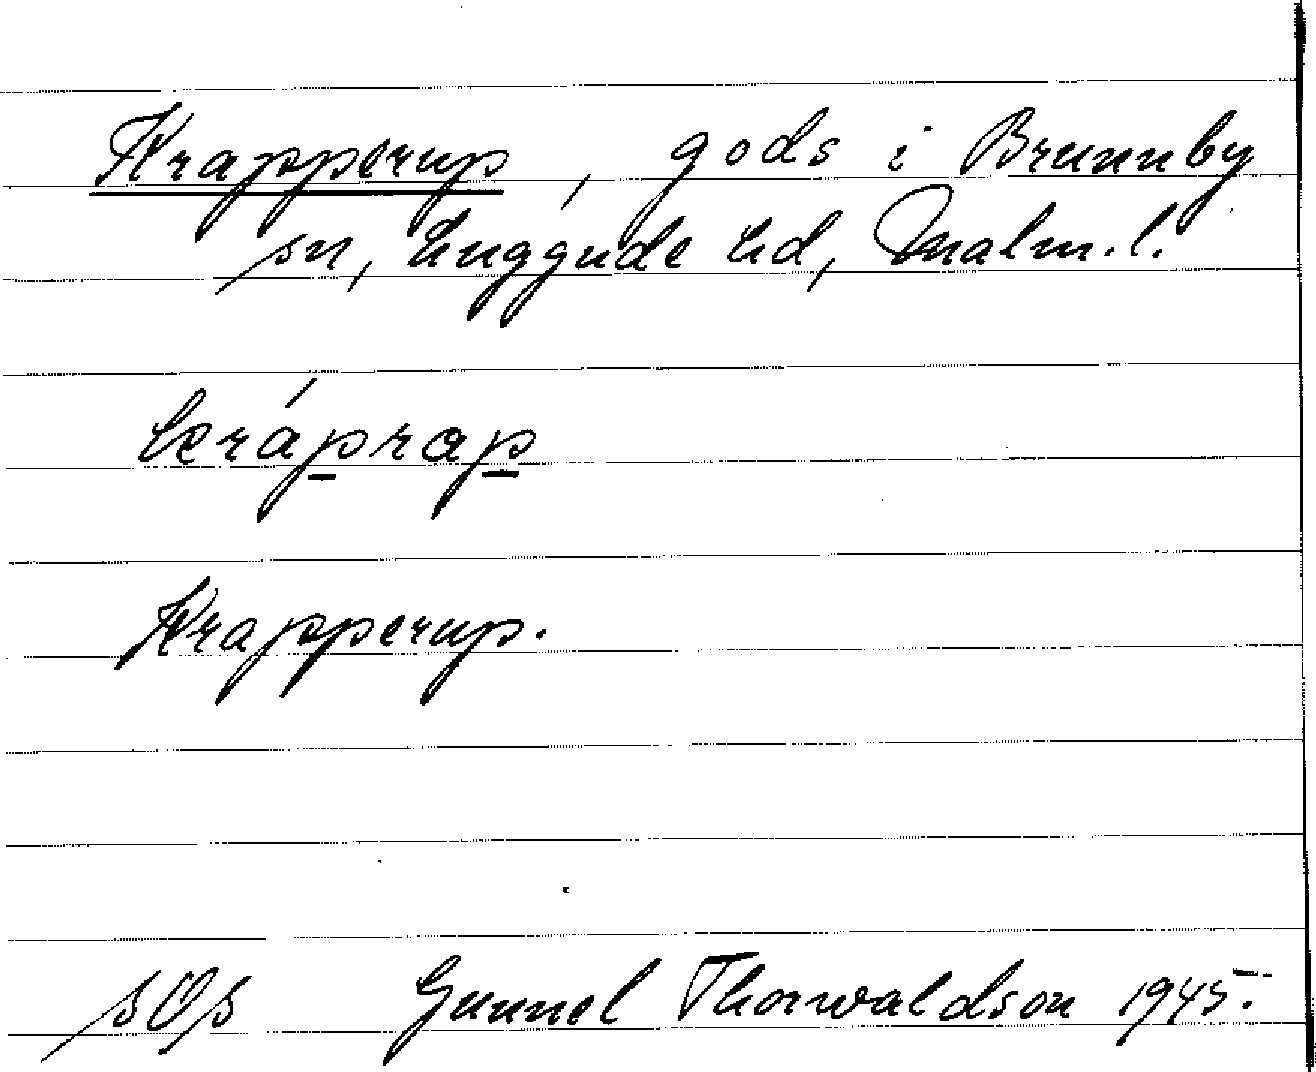 Krapperup, gods i Brunnby
sn, Luggude hd, Malm.l.
kráprap
Krapperup.
Gunnel Thorwaldson 1945.